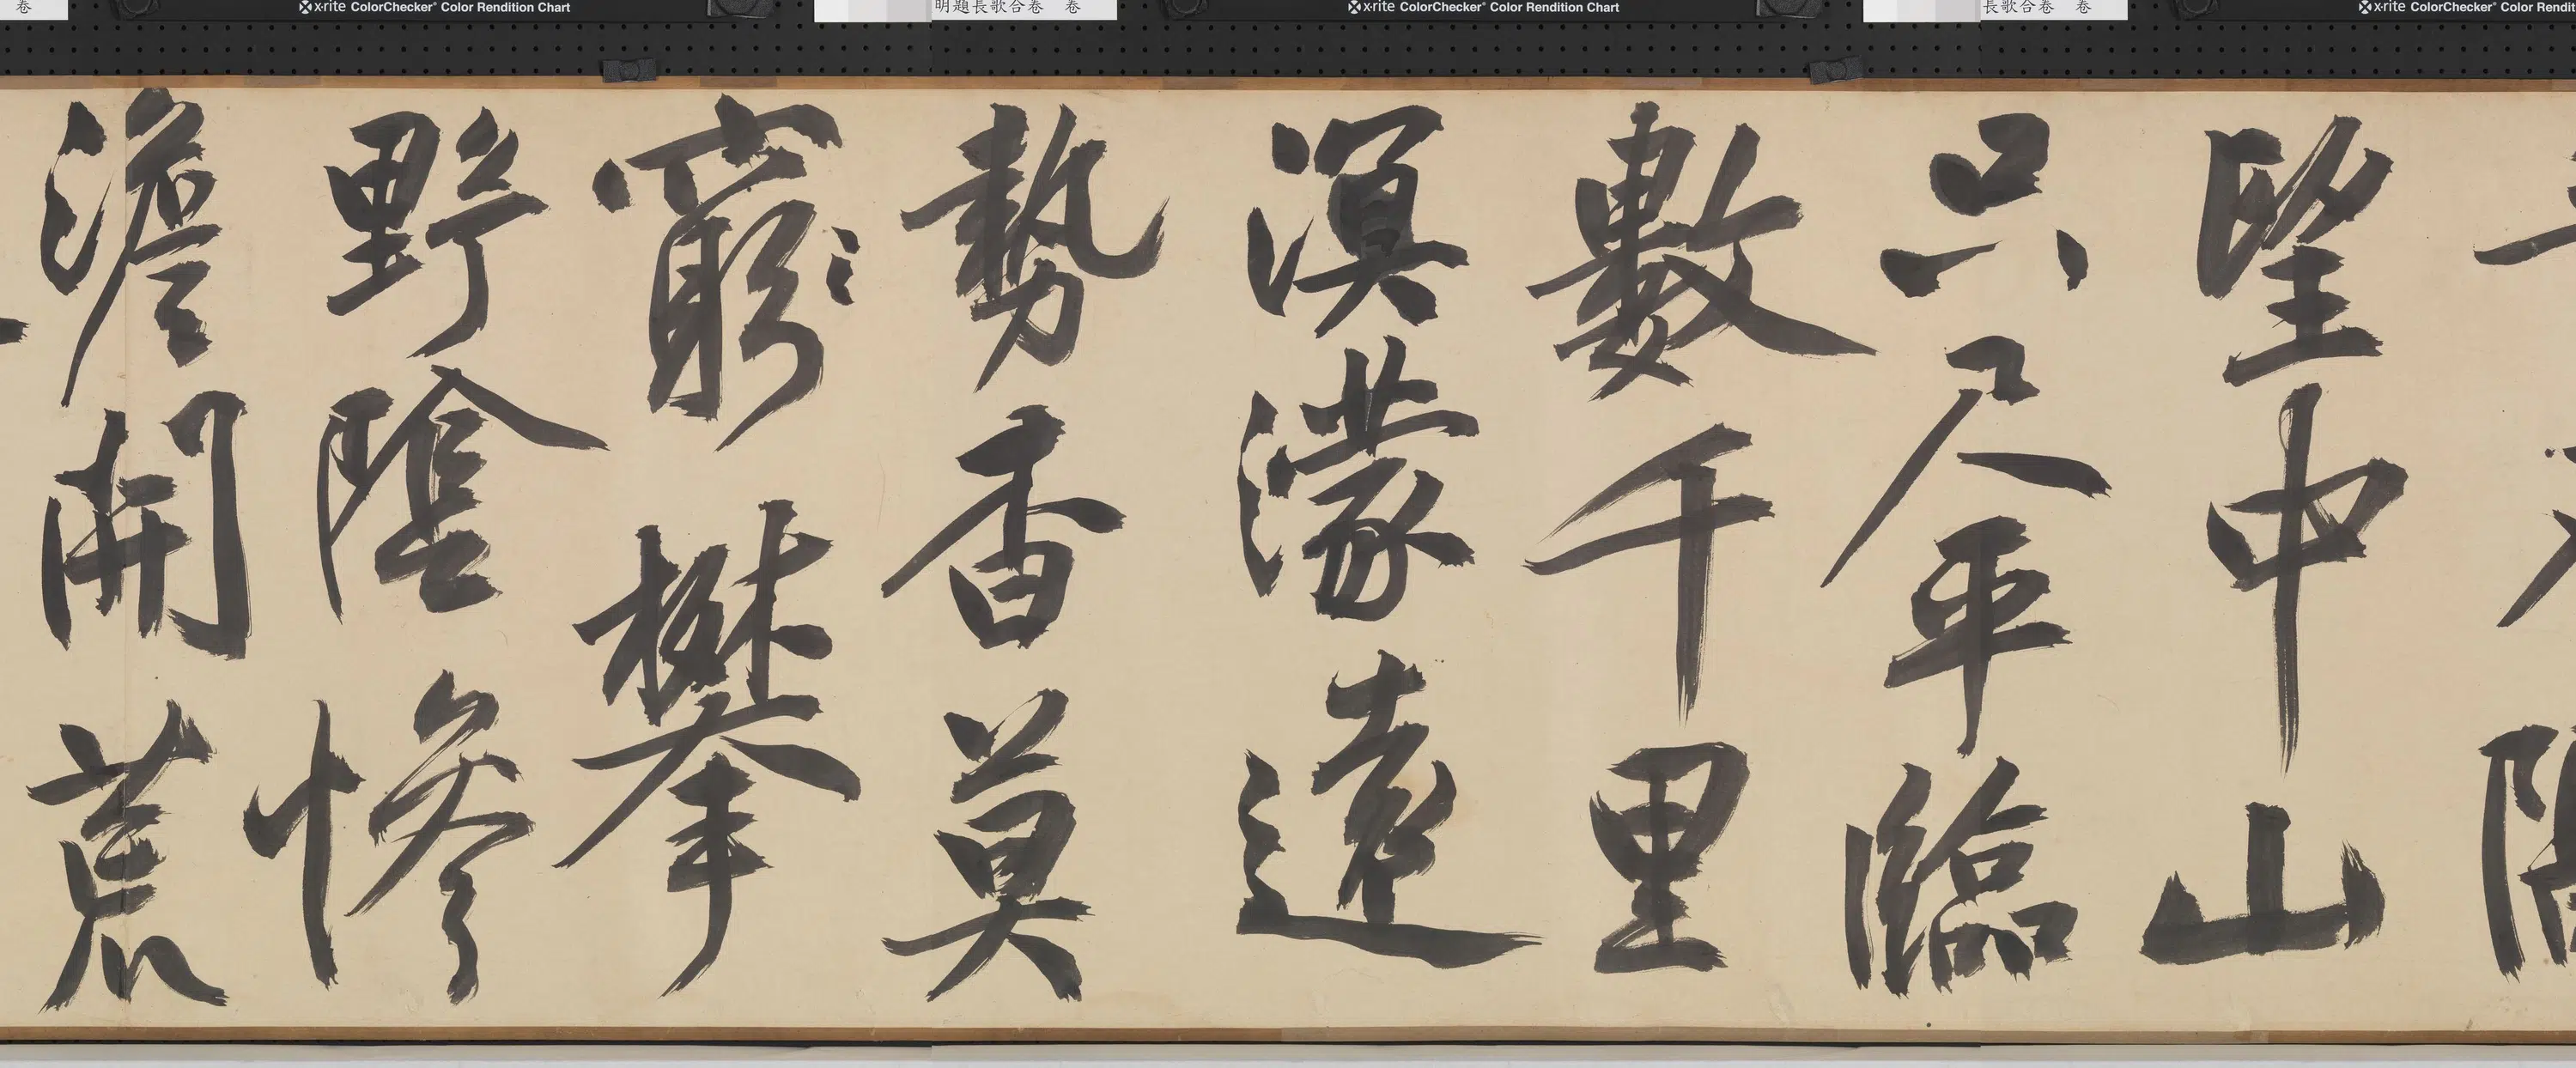 卷
x-rite ColorChecker Color Rendition Chart
明題長歌合卷 卷
x-rite ColorChecker Color Rendition Chart
長歌合卷 卷
x-rite ColorChecker Color Rendit
望中山
只尺平臨
數千里
溟濛遠
勢香莫
窮攀
野陰慘
澹開荒